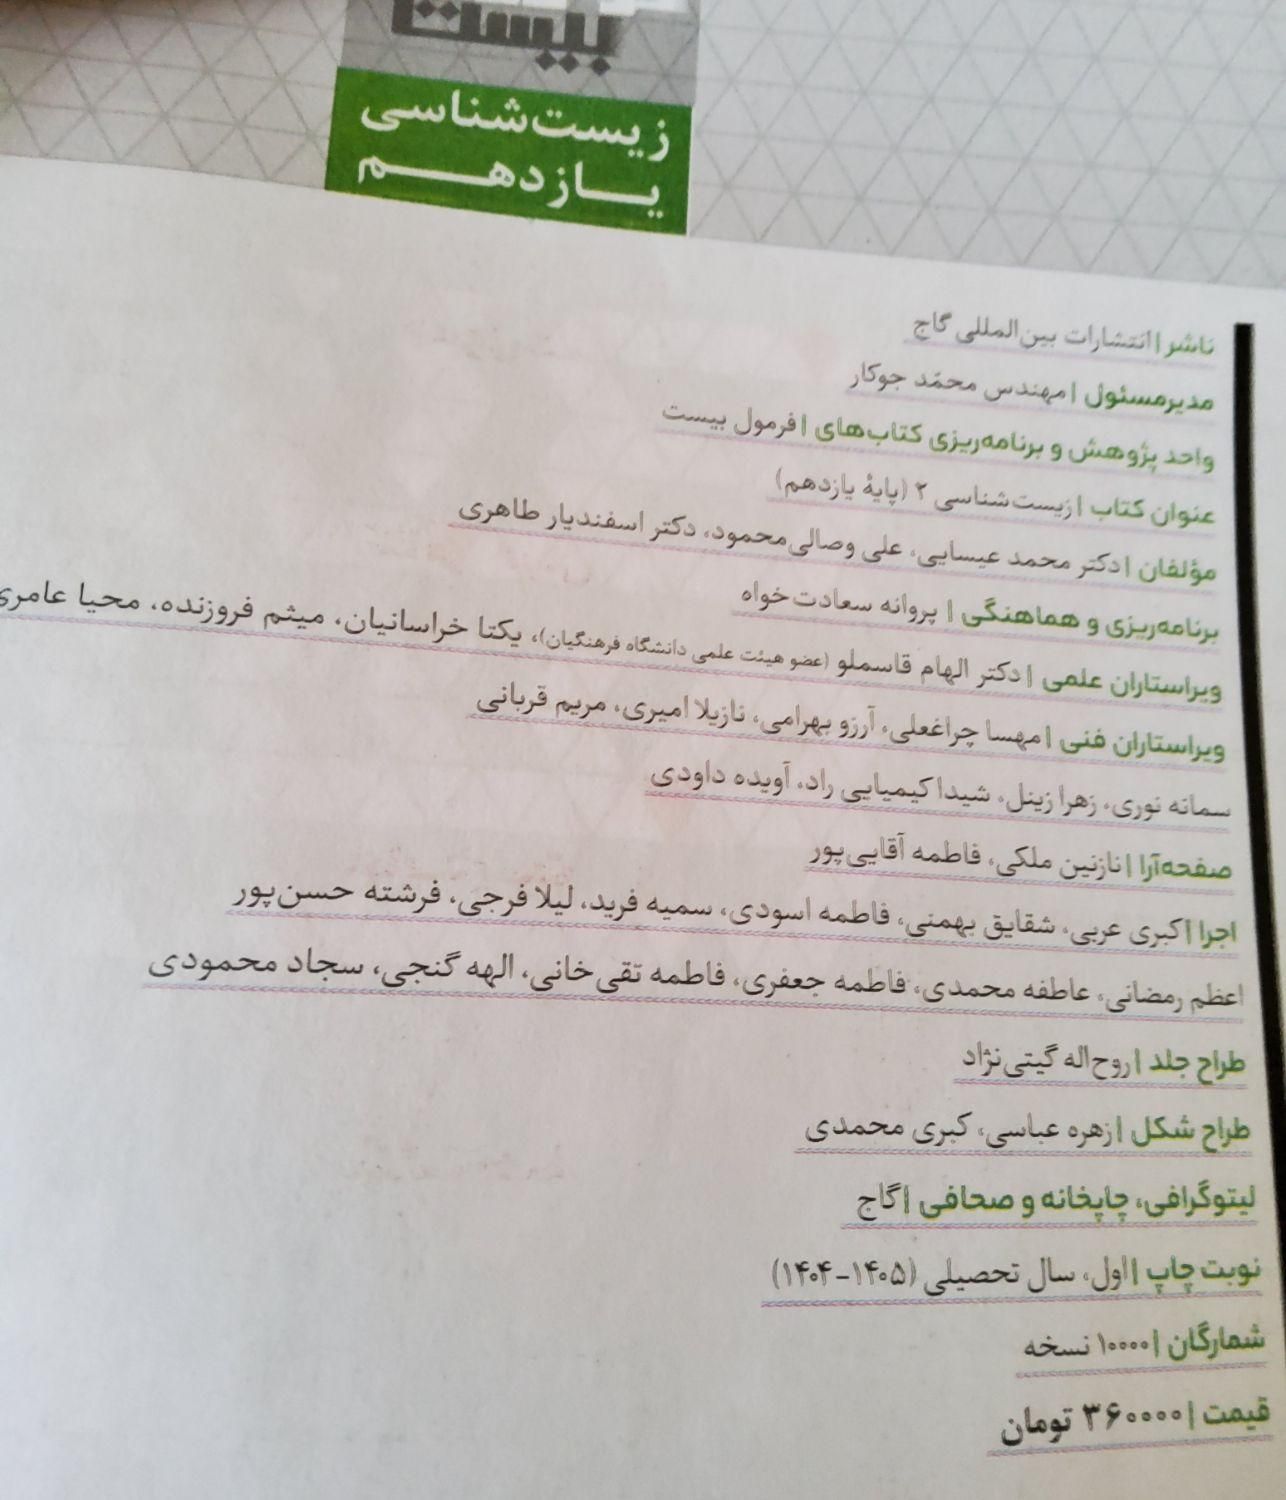 بیست
زیست‌شناسی
یازدهم
ناشر | انتشارات بین‌المللی گاج
مدیرمسئول | مهندس محمّد جوکار
واحد پژوهش و برنامه‌ریزی کتاب‌های | فرمول بیست
عنوان کتاب | زیست‌شناسی ۲ (پایهٔ یازدهم)
مؤلفان | دکتر محمد عیسایی، علی وصالی‌محمود، دکتر اسفندیار طاهری
برنامه‌ریزی و هماهنگی | پروانه سعادت‌خواه
ویراستاران علمی | دکتر الهام قاسملو (عضو هیئت علمی دانشگاه فرهنگیان)، یکتا خراسانیان، میثم فروزنده، محیا عامری
ویراستاران فنی | مهسا چراغعلی، آرزو بهرامی، نازیلا امیری، مریم قربانی
سمانه نوری، زهرا زینل، شیدا کیمیایی راد، آویده داودی
صفحه‌آرا | نازنین ملکی، فاطمه آقایی‌پور
اجرا | کبری عربی، شقایق بهمنی، فاطمه اسودی، سمیه فرید، لیلا فرجی، فرشته حسن‌پور
اعظم رمضانی، عاطفه محمدی، فاطمه جعفری، فاطمه تقی‌خانی، الهه گنجی، سجاد محمودی
طراح جلد | روح‌اله گیتی‌نژاد
طراح شکل | زهره عباسی، کبری محمدی
لیتوگرافی، چاپخانه و صحافی | گاج
نوبت چاپ | اول، سال تحصیلی (۱۴۰۵-۱۴۰۴)
شمارگان | ۱۰۰۰۰ نسخه
قیمت | ۳۶۰۰۰۰ تومان